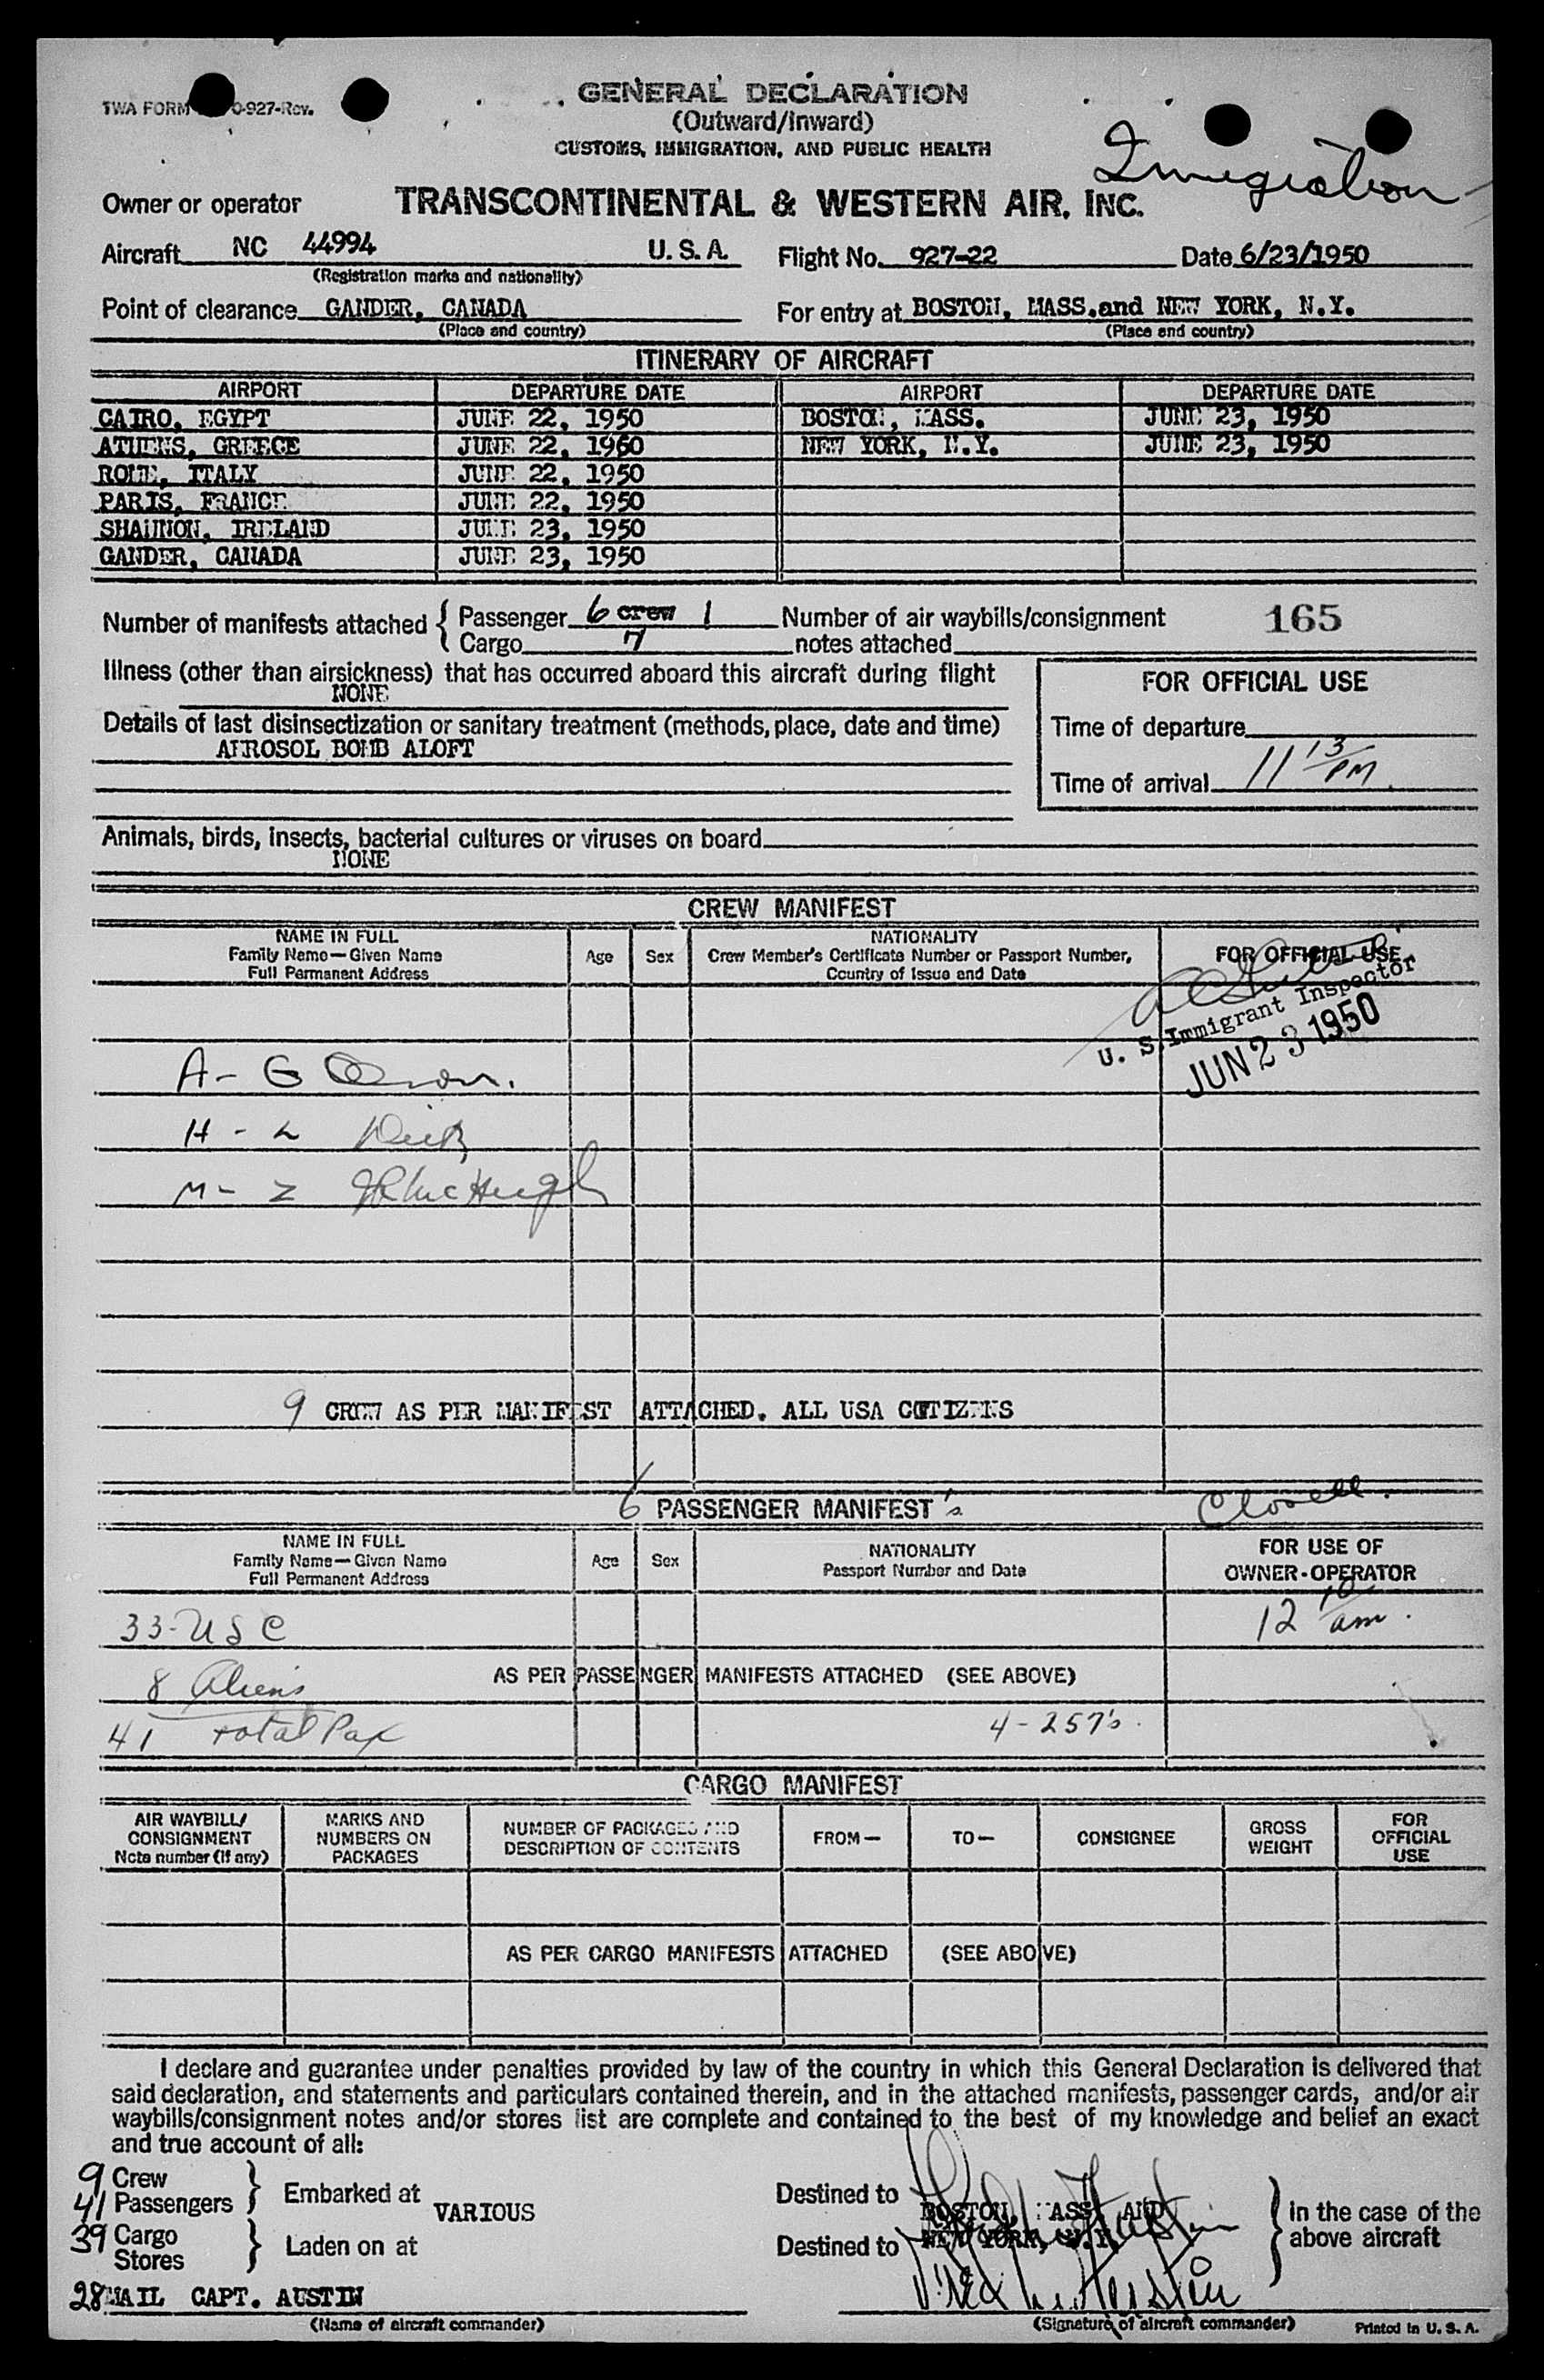 TWA FORM 0-927-Rev.
GENERAL DECLARATION
(Outward/Inward)
CUSTOMS, IMMIGRATION, AND PUBLIC HEALTH
Immigration
Owner or operator TRANSCONTINENTAL & WESTERN AIR, INC.
Aircraft NC 44994 U. S. A. Flight No. 927-22 Date 6/23/1950
(Registration marks and nationality)
Point of clearance GANDER, CANADA For entry at BOSTON, MASS.and NEW YORK, N.Y.
(Place and country) (Place and country)
ITINERARY OF AIRCRAFT
AIRPORT DEPARTURE DATE AIRPORT DEPARTURE DATE
CAIRO, EGYPT JUNE 22, 1950 BOSTON, MASS. JUNE 23, 1950
ATHENS, GREECE JUNE 22, 1960 NEW YORK, N.Y. JUNE 23, 1950
ROME, ITALY JUNE 22, 1950
PARIS, FRANCE JUNE 22, 1950
SHANNON, IRELAND JUNE 23, 1950
GANDER, CANADA JUNE 23, 1950
Number of manifests attached { Passenger 6 crew 1 Number of air waybills/consignment 165
Cargo 7 notes attached
Illness (other than airsickness) that has occurred aboard this aircraft during flight
NONE
FOR OFFICIAL USE
Details of last disinsectization or sanitary treatment (methods, place, date and time)
AEROSOL BOMB ALOFT
Time of departure
Time of arrival 11 13 PM
Animals, birds, insects, bacterial cultures or viruses on board
NONE
CREW MANIFEST
NAME IN FULL
Family Name—Given Name
Full Permanent Address
Age Sex
NATIONALITY
Crew Member's Certificate Number or Passport Number,
Country of Issue and Date
FOR OFFICIAL USE
U. S. Immigrant Inspector
JUN 23 1950
A - G
H - L
M - Z
9 CREW AS PER MANIFEST ATTACHED. ALL USA CITIZENS
6 PASSENGER MANIFEST's
NAME IN FULL
Family Name—Given Name
Full Permanent Address
Age Sex
NATIONALITY
Passport Number and Date
FOR USE OF
OWNER-OPERATOR
33-USC
12 10 am.
8 Aliens AS PER PASSENGER MANIFESTS ATTACHED (SEE ABOVE)
41 total Pax 4-257's.
CARGO MANIFEST
AIR WAYBILL/
CONSIGNMENT
Note number (if any)
MARKS AND
NUMBERS ON
PACKAGES
NUMBER OF PACKAGES AND
DESCRIPTION OF CONTENTS
FROM—
TO—
CONSIGNEE
GROSS
WEIGHT
FOR
OFFICIAL
USE
AS PER CARGO MANIFESTS ATTACHED (SEE ABOVE)
I declare and guarantee under penalties provided by law of the country in which this General Declaration is delivered that
said declaration, and statements and particulars contained therein, and in the attached manifests, passenger cards, and/or air
waybills/consignment notes and/or stores list are complete and contained to the best of my knowledge and belief an exact
and true account of all:
9 Crew
41 Passengers } Embarked at VARIOUS Destined to BOSTON, MASS. AND
39 Cargo
Stores } Laden on at Destined to NEW YORK, N.Y.
In the case of the
above aircraft
28 MAIL CAPT. AUSTIN
(Name of aircraft commander) (Signature of aircraft commander) Printed in U. S. A.